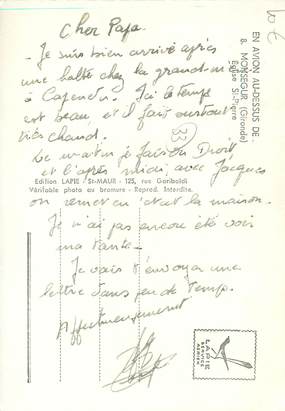 Cher Papa
Je suis bien arrivé après
une halte chez la grand-m
à Capendu. Ici le temps
est beau, et il fait surtout
très chaud.
Le matin je fais du Droit
et l'après midi avec Jacques
on remet en état la maison.
Je n'ai pas encore été voir
ma tante.
Je vais t'envoyer une
lettre dans peu de temps.
Affectueusement
EN AVION AU-DESSUS DE...
8. MONSEGUR (Gironde)
Eglise St-Pierre
33
Edition LAPIE - St-MAUR - 125, rue Garibaldi
Véritable photo au bromure - Reprod. Interdite.
LAPIE
SERVICE
AERIEN